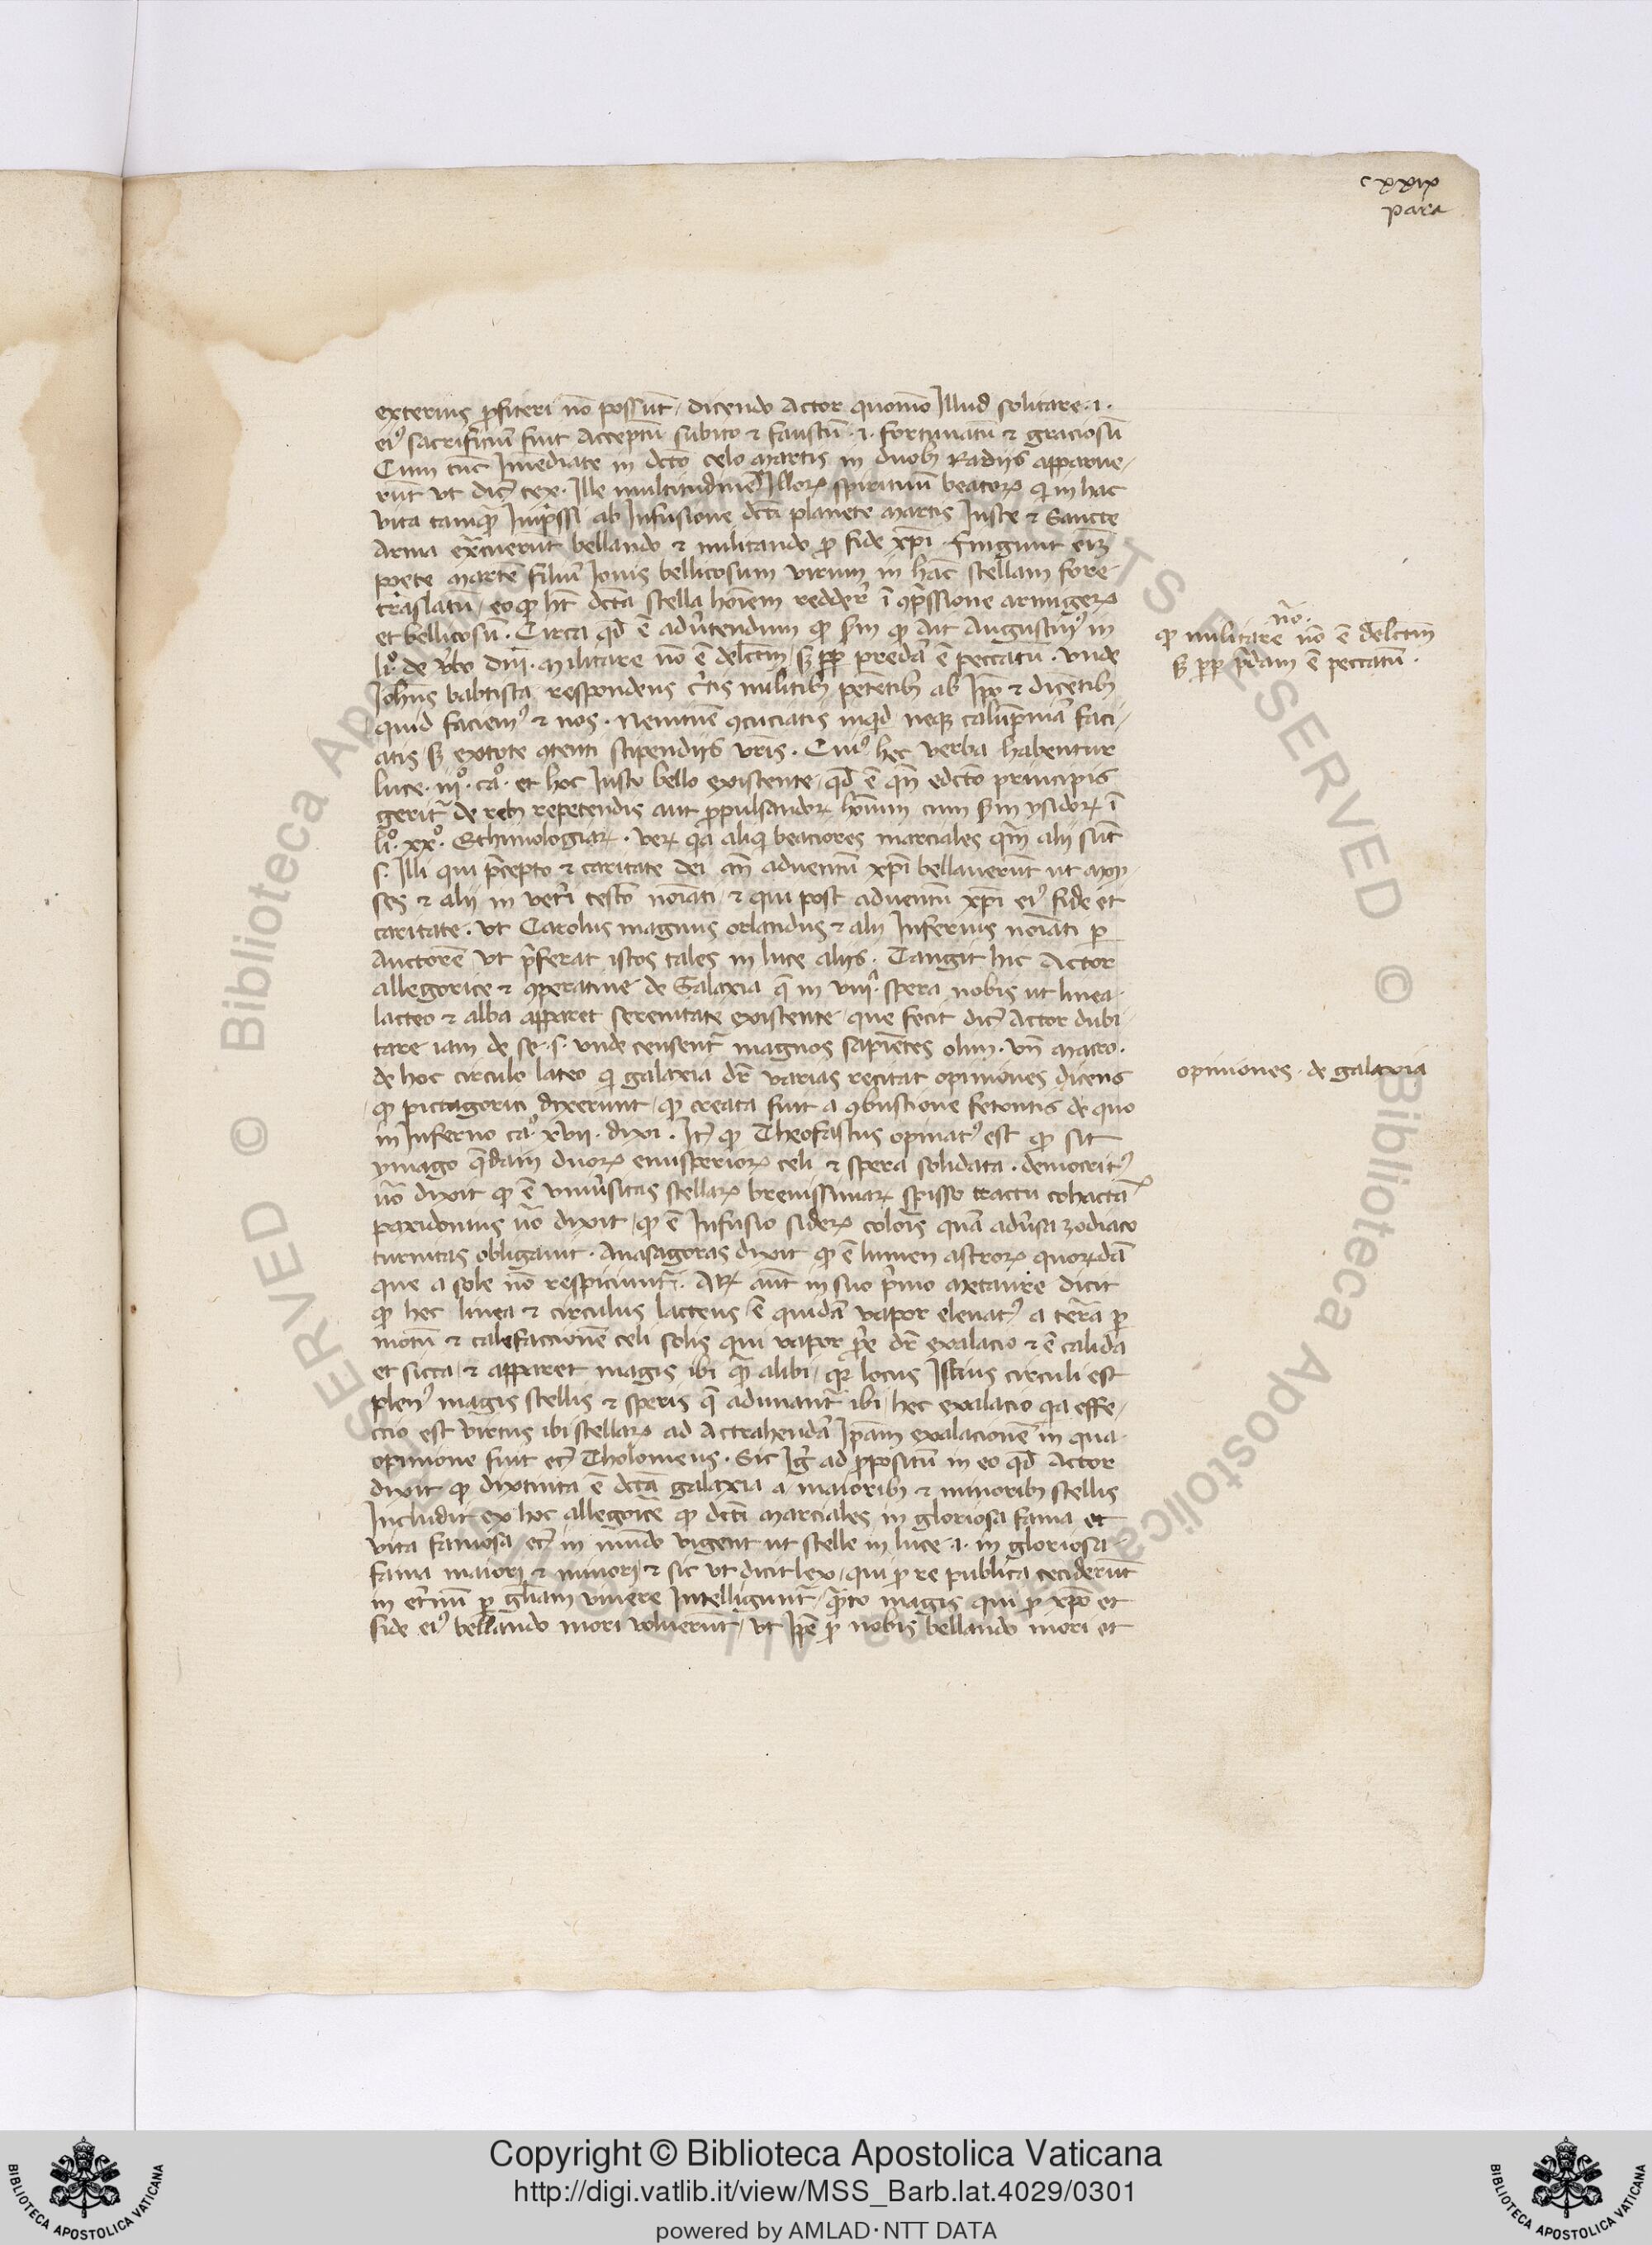 cxxix
para
exterius p̄fiteri nō possūt / dicendo Actor quomō Illud solitare .i.
eiꝰ sacrificiū fuit Acceptū subito ⁊ faustū .i. fortunatū ⁊ graciosū
Cum tūc Inmediate in dc̄to celo martis in duobꝫ Radijs apparue-
rūt vt dic̄ tex. Ille multitudinē Illoꝝ spirituū beatoꝝ qi in hac
vita tamqꝫ Imp̄ssi ab Infusione dc̄ti planete martis Iuste ⁊ Sancte
Arma ex̄cuerūt bellando ⁊ militando ꝓ fide xp̄i fingunt eiꝫ
poete martē filiū Iouis bellicosum virum in hāc stellam fore
trāslatū / eo qꝫ ht̄ dc̄ta stella hoīem redder̄ ī ꝯp̄ssione armigeꝝ
et bellicosū. Circa qd̄ ē adūtendum qꝫ sm̄ qꝫ Ait Augustinꝰ in
li͞o de v̄bo dn̄i. militare nō ē delc̄tm / sꝫ ꝓp p̄redā ē peccatū. vnde
Ioh̄nes babtista respondens c̄tis militibꝫ petētibꝫ ab Ip̄o ⁊ dicētibꝫ
quid faciemꝰ ⁊ nos. Neminē ꝯcuciatis inqd̄ neqꝫ calūpniā faci-
atis sꝫ extote ꝯtenti stipendijs vr̄is. Cuiꝰ hec verba habentur
luce .iijº. cº. et hoc Iusto bello existente / qd̄ ē qn̄ edc̄to principis
gerit̄ de rebꝫ repetendis aut ꝓpulsandoꝝ hoīum cum sm̄ ysidoꝝ ī
liº. xxº. Ethimologiaꝝ. veꝝ qa aliqi beaciores marciales qm̄ alij sūt
s. Illi qui p̄cepto ⁊ caritate dei an̄ aduentū xp̄i bellauerūt ut moy-
ses ⁊ alij in vet̄i test̄o noīati / ⁊ qui post aduentū xp̄i eiꝰ fide et
caritate. vt Carolus magnus orlandus ⁊ alij Inferius noīati ꝑ
Auctorē vt p̄ferat istos tales in luce alijs. Tangit hic Actor
allegorice ⁊ ꝯperatiue de Galaxia q̄ in viijͣ. spera nobis ut linea
lacteo ⁊ alba apparet serenitate existente / que fecit dic̄ Actor dubi-
tare iam de se .s. vnde censent̄ magnos sapiētes olim. vn̄ macro.
de hoc circulo lateo qi galaxia dr̄ varias recitat opiniones dicens
qꝫ pictagorici dixerunt / qꝫ creata fuit a ꝯbustione fetontis de quo
in Inferno cº. xvii. dixi. It̄ qꝫ Theofastus opinatꝰ est qꝫ sit
ymago q̄dam duoꝝ emisperioꝝ celi ⁊ spera solidata. democritꝰ
ūo dixit qꝫ ē vniūsitas stellaꝝ breuissimaꝝ spisso tractu cohactaꝝ
paxidonius ūo dixit / qꝫ ē Infusio sideꝝ coloris quā adūsa zodiaco
turnitas obligauit. Anasagoras dixit qꝫ ē lumen astroꝝ quoꝝdā
que a sole nō respiciunt̄. Aꝝ aūt in suo p̄mo Metaure dicit
qꝫ hec linea ⁊ circulus lacteus ē quidā vapor eleuatꝰ a terra ꝑ
motū ⁊ calefaccionē celi solis qui vapor p̄e dr̄ exalacio ⁊ ē calida
et sicca / ⁊ apparet magis ibi qꝫ alibi / qꝛ locus Istius circuli est
plenꝰ magis stellis ⁊ speris q̄ adunant̄ ibi / hec exalacio qa effe-
ctio est virtus ibi stellaꝝ ad Actrahendā Ip̄am exalacionē in qua
opinione fuit ec̄ Tholomeus. Sic Iḡ ad ꝓpositū in eo qd̄ Actor
dixit qꝫ dixtinta ē dc̄ta galaxia a maioribꝫ ⁊ minoribꝫ stellis
Includit ex hoc allegorice qꝫ dc̄ti marciales in gloriosa fama et
vita famosa ec̄ in mūdo vigent ut stelle in luce .i. in gloriosa
fama maiori ⁊ minori / ⁊ sic vt dicit lex / qui ꝓ re publica ceciderūt
in et̄nū ꝑ gl̄iam viuere Intelligunt̄ / qꝫto magis qui ꝓ xp̄o et
fide eiꝰ bellando mori voluerūt / vt Ip̄e ꝓ nobis bellando mori et
nō.
qꝫ militare nō ē delc̄tm
sꝫ ꝓp p̄dam ē peccatū.
opiniones de galaxia
© Biblioteca Apostolica Vaticana
ALL RIGHTS RESERVED
Copyright © Biblioteca Apostolica Vaticana
http://digi.vatlib.it/view/MSS_Barb.lat.4029/0301
powered by AMLAD·NTT DATA
BIBLIOTECA APOSTOLICA VATICANA
BIBLIOTECA APOSTOLICA VATICANA